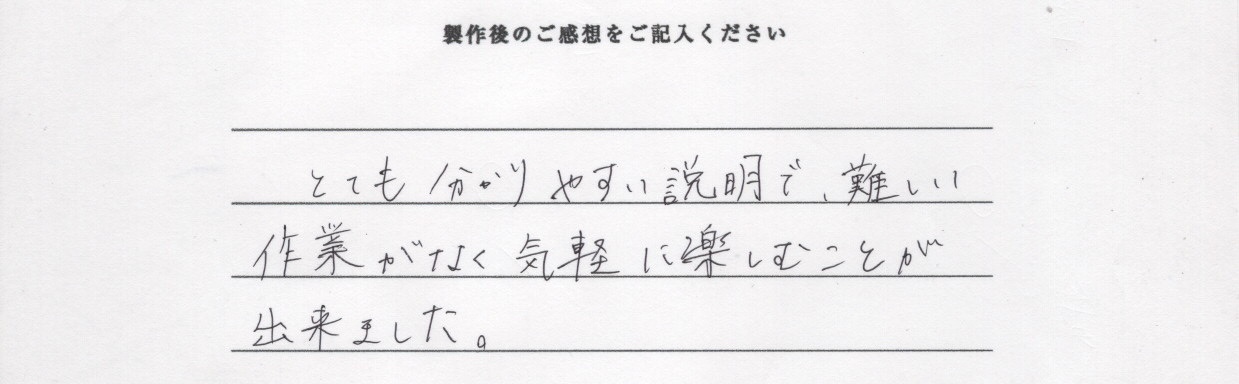 製作後のご感想をご記入ください
とても分かりやすい説明で、難しい
作業がなく気軽に楽しむことが
出来ました。